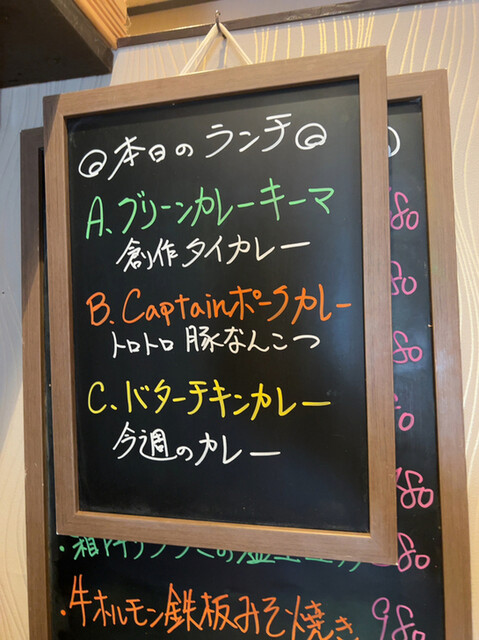 本日のランチ
A. グリーンカレーキーマ
創作タイカレー
B. Captainポークカレー
トロトロ豚なんこつ
C. バターチキンカレー
今週のカレー
80
80
80
80
80
80
・牛ホルモン鉄板みそ焼き 980